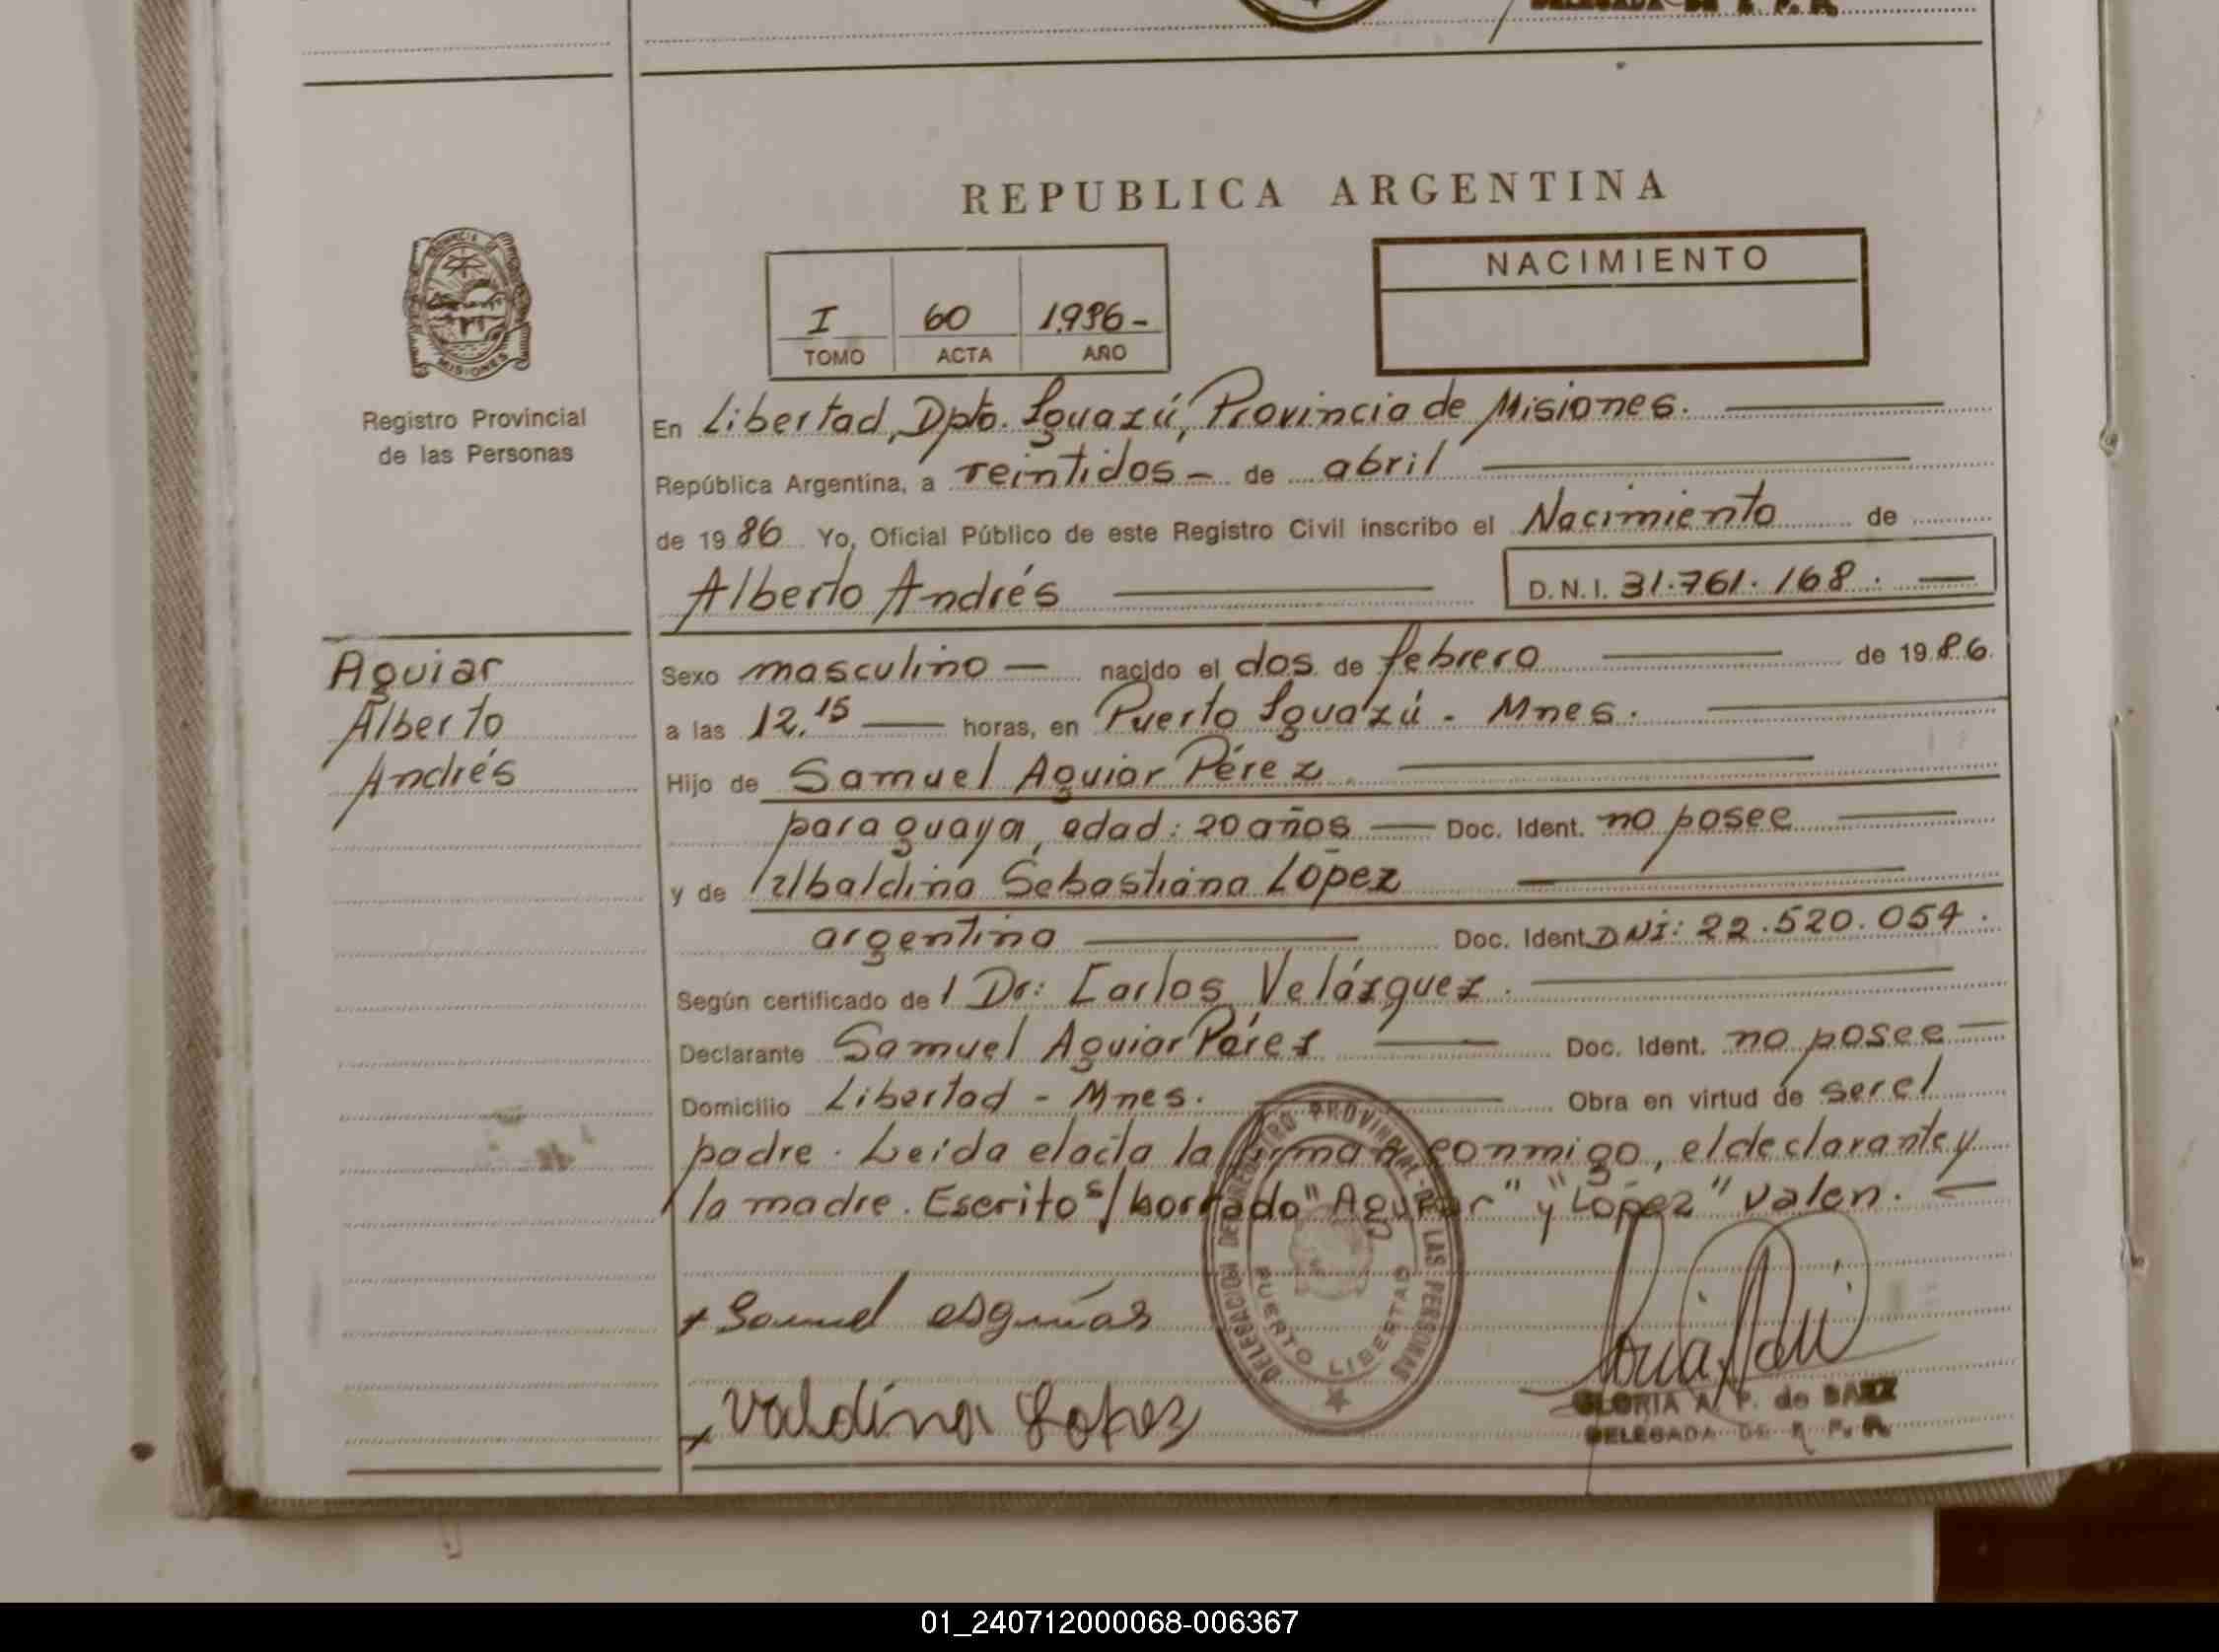 DELEGADA DE R. P. P.
REPUBLICA ARGENTINA
PROVINCIA DE MISIONES
Registro Provincial
de las Personas
I 60 1.986-
TOMO ACTA AÑO
NACIMIENTO
En Libertad, Dpto. Iguazú, Provincia de Misiones.
República Argentina, a veintidos - de abril
de 1986 Yo, Oficial Público de este Registro Civil inscribo el Nacimiento de
Alberto Andrés D.N.I. 31.761.168.
Aguiar
Alberto
Andrés
Sexo masculino nacido el dos de febrero de 1986.
a las 12.15 horas, en Puerto Iguazú - Mnes.
Hijo de Samuel Aguiar Pérez
paraguaya, edad: 20 años Doc. Ident. no posee
y de Ubaldina Sebastiana López
argentina Doc. Ident. DNI: 22.520.054.
Según certificado de l Dr: Carlos Velázquez.
Declarante Samuel Aguiar Pérez Doc. Ident. no posee
Domicilio Libertad - Mnes. Obra en virtud de ser el
padre. Leída el acta la firman conmigo, el declarante y
la madre. Escrito s/borrado "Aguiar" y "López" valen.
x Samuel
x Valdina Lopez
DELEGACION DEL REGISTRO PROVINCIAL DE LAS PERSONAS
PUERTO LIBERTAD
GLORIA A. P. de BAEZ
DELEGADA DE R. P. P.
01_240712000068-006367